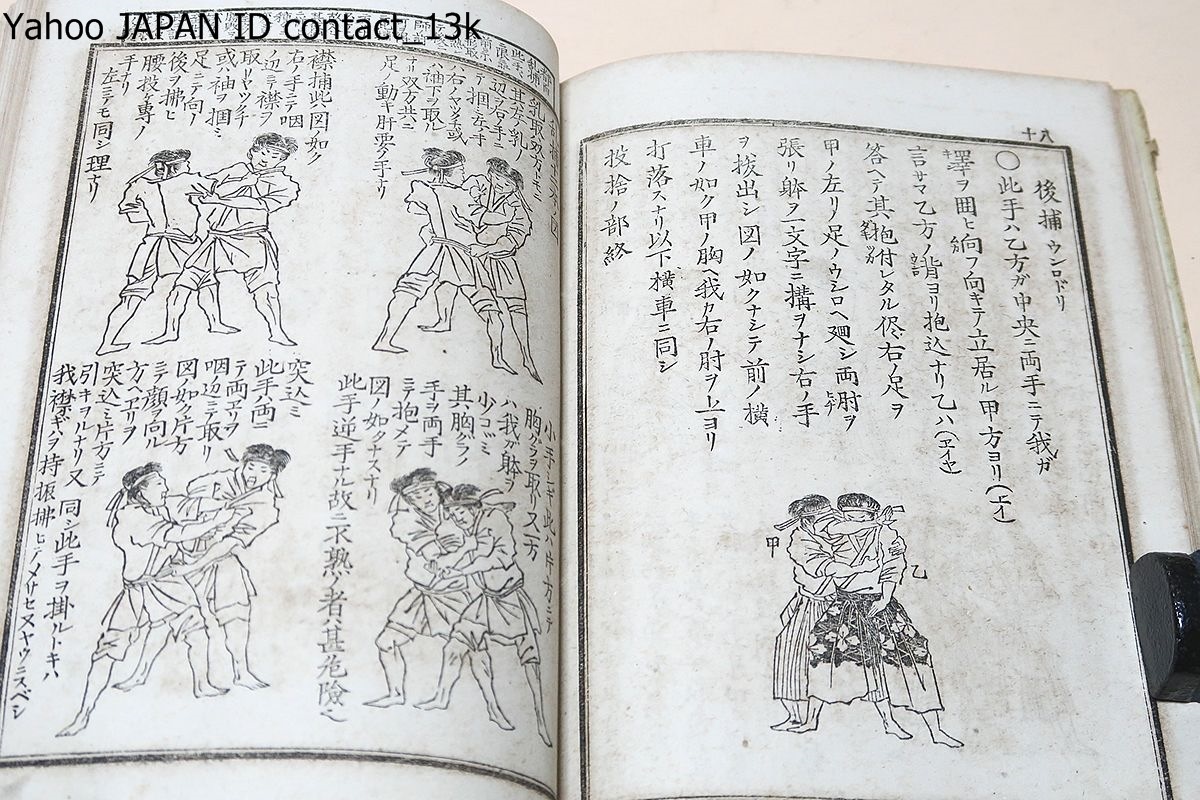 Yahoo JAPAN ID contact_13k
十八
後捕 ウンロドリ
〇此手ハ乙方ガ中央ニ両手ニテ我ガ
睪ヲ囲ヒ向フ向キテ立居ル甲方ヨリ(エイ)
言サマ乙方ノ背ヨリ抱込ナリ乙ハ(エイヤ)
答ヘテ其抱付レタル侭右ノ足ヲ
甲ノ左リ足ノウシロヘ廻シ両肘ヲ
張リ躰ヲ一文字ニ構ヲナシ右ノ手
ヲ拔出シ図ノ如クナシテ前ノ横
車ノ如ク甲ノ胸ヘ我カ右ノ肘ヲ上ヨリ
打落スナリ以下横車ニ同シ
投捨ノ部終
甲
乙
乳取双方トモニ
其左ノ乳ノ
辺ヲ右ノ手ニ
テ掴ミ左ノ手
右ノヤツ或
ハ袖下ヲ取ル
ナリ双方共ニ
足ノ動キ肝要ノ手ナリ
襟捕此図ノ如ク
右ノ手ニテ咽
ノ辺ニテ襟ヲ
取リヤツクチ
或ハ袖ヲ掴ミ
足ニテ向ノ
後ヲ拂ヒ
腰投ケ專ノ
手ナリ
左ニテモ同シ理ナリ
小手シギ此ハ片方ニテ
胸グラヲ取リ又一方
ハ我ガ躰ヲ
少コゴミ
其胸グラノ
手ヲ両手
ニテ抱メテ
図ノ如クナスナリ
此手逆手ナル故ニ不熟ノ者ハ甚危險ニ
突込ミ
此手ノ両ニ
テ両エリヲ
咽辺ニテ取リ
図ノ如ク片方
ミテ顔ヲ向ル
方ヘエリヲ
突込ミ片方ニテ
引キヲルナリ又
我襟ギハヲ持振拂ヒニノメサセヌヤウニスベシ
同シ此手ヲ掛ルトキハ